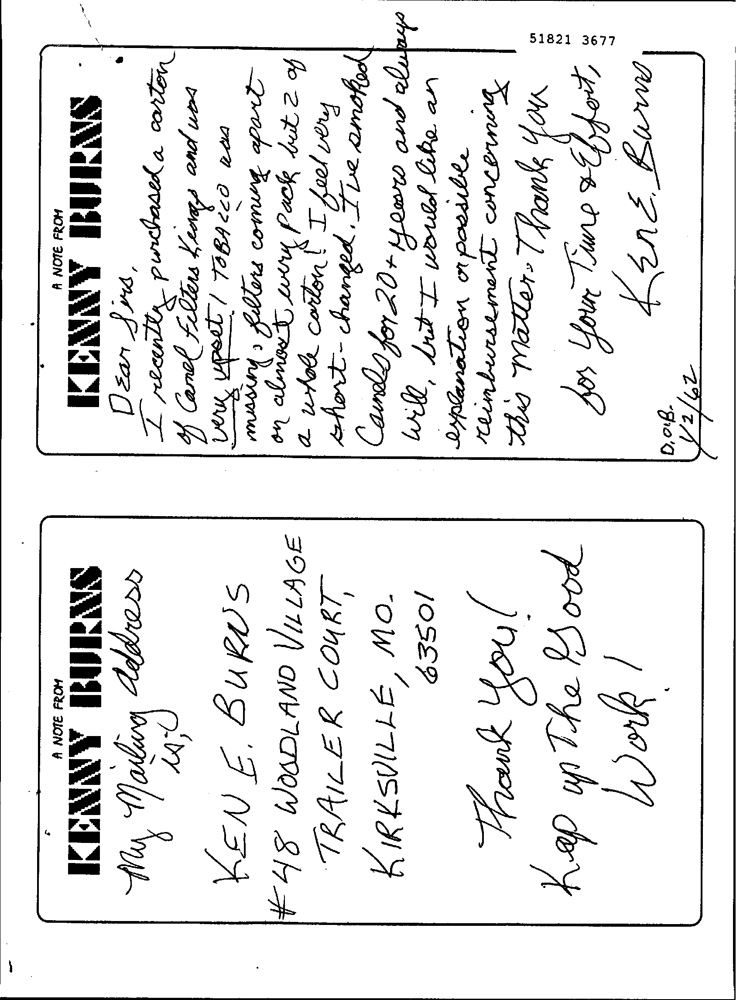 51821 3677
A NOTE FROM
KENNY BURNS
Dear Sirs,
I recently purchased a carton
of Camel Filters Kings and was
very upset! TOBACCO was
missing, filters coming apart
on almost every pack but 2 of
a whole carton! I feel very
short-changed. I've smoked
Camels for 20+ years and always
will, but I would like an
explanation or possible
reimbursement concerning
this Matter. Thank You
for Your Time & Effort,
Ken E. Burns
D.O.B.
1/2/62
A NOTE FROM
KENNY BURNS
My Mailing address
is;
KEN E. BURNS
#48 WOODLAND VILLAGE
TRAILER COURT,
KIRKSVILLE, MO.
63501
Thank You!
Keep up The Good
Work!